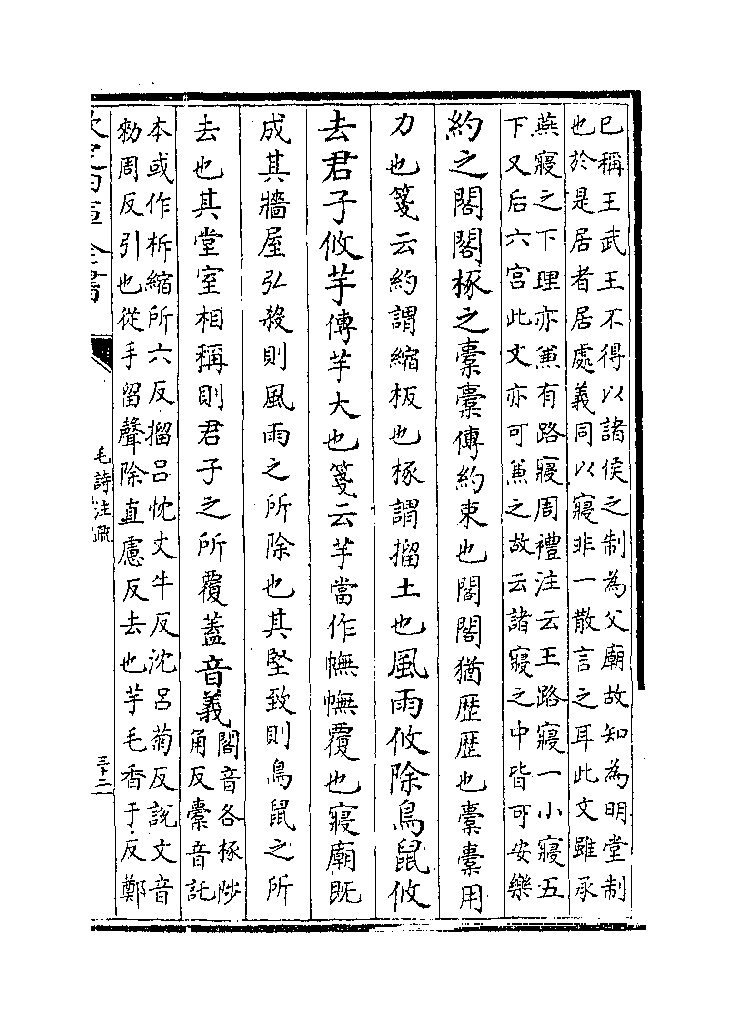 已稱王武王不得以諸侯之制為父廟故知為明堂制
也於是居者居處義同以寢非一散言之耳此文雖承
燕寢之下理亦兼有路寢周禮注云王路寢一小寢五
下又后六宫此文亦可兼之故云諸寢之中皆可安樂
約之閣閣椓之橐橐傳約束也閣閣猶歴歴也橐橐用
力也箋云約謂縮板也椓謂搊土也風雨攸除鳥鼠攸
去君子攸芋傳芋大也箋云芋當作幠幠覆也寢廟既
成其牆屋弘殺則風雨之所除也其堅致則鳥鼠之所
去也其堂室相稱則君子之所覆蓋音義
閣音各椓陟
角反橐音託
本或作㭊縮所六反搊吕忱丈牛反沈吕菊反說文音
勑周反引也從手留聲除直慮反去也芋毛香于反鄭
毛詩注疏
三十二